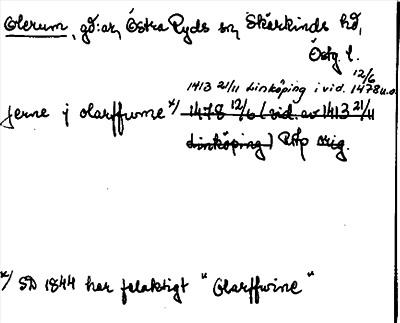 Olerum, gd:ar, Östra Ryds sn, Skärkinds hd,
Östg. l.
1413 21/11 Linköping i vid. 1478 12/6 u.o.
Jerne j olarffwme x/ 1478 12/6 (vid. av 1413 21/11
Linköping) RAp orig.
x/ SD 1844 har felaktigt "Olarffwine"